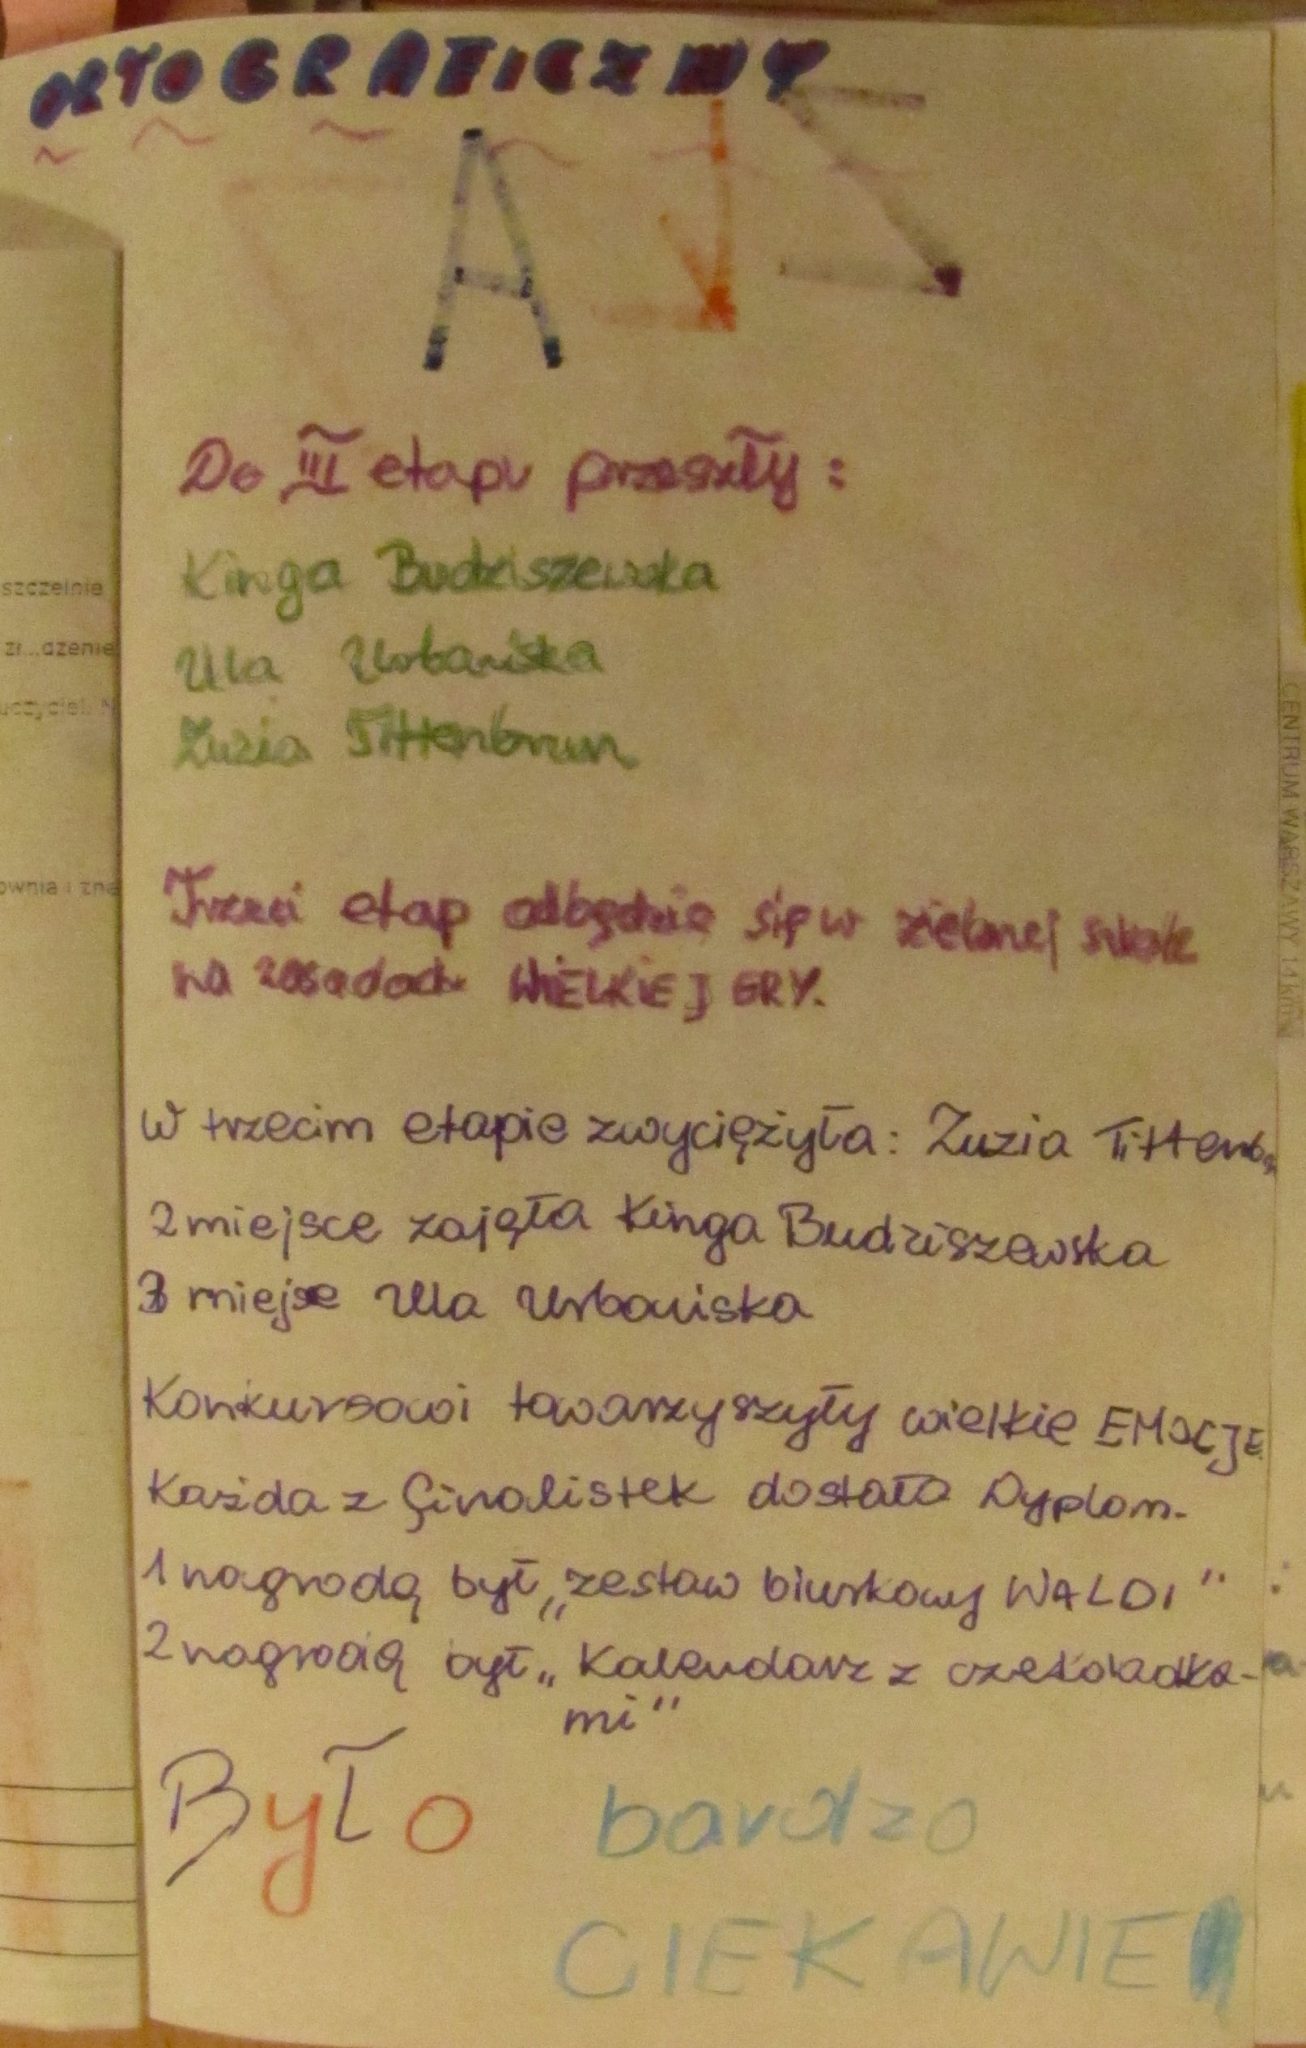 ORTOGRAFICZNY
A
Do III etapu przeszły:
Kinga Budziszewska
Ula Urbańska
Zuzia Tittenbrun
Trzeci etap odbędzie się w zielonej szkole
na zasadach WIELKIEJ GRY.
W trzecim etapie zwyciężyła: Zuzia Tittenb
2 miejsce zajęła Kinga Budziszewska
3 miejsce Ula Urbańska
Konkursowi towarzyszyły wielkie EMOCJE
Każda z finalistek dostała Dyplom.
1 nagrodą był „zestaw biurkowy WALDI"
2 nagrodą był „Kalendarz z czekoladka-
mi"
Było bardzo
CIEKAWIE
szczelnie
dzenie
ownia i zna
CENTRUM WARSZAWY 14 km